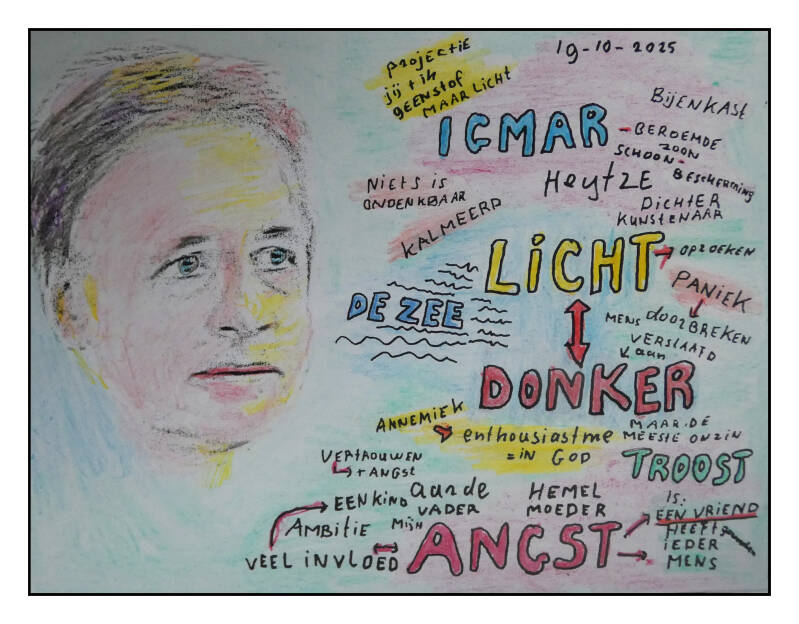 19-10-2025
projectie
jij + ik
geen stof
maar licht
IGMAR
BIJENKAST
BEROEMDE
ZOON
SCHOON-
BESCHERMING
HEYTZE
DICHTER
KUNSTENAAR
NIETS IS
ONDENKBAAR
KALMEERD
LICHT
OPZOEKEN
PANIEK
DE ZEE
MENS doorBREKEN
VERSLAAFD
aan
DONKER
ANNEMIEK
enthousiastme
= in GOD
MAAR.DE
MEESTE ONZIN
TROOST
IS:
EEN VRIEND
HEEFT
IEDER
MENS
VERTROUWEN
+ ANGST
EEN KIND
aarde
VADER
HEMEL
MOEDER
AMBITIE
MIJN
ANGST
VEEL INVLOED